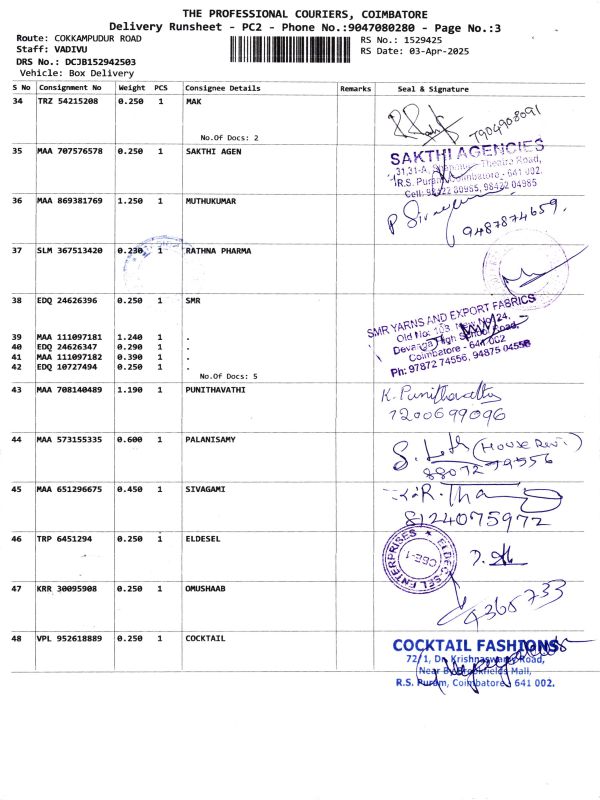 THE PROFESSIONAL COURIERS, COIMBATORE
Delivery Runsheet - PC2 - Phone No.:9047080280 - Page No.:3
Route: COKKAMPUDUR ROAD RS No.: 1529425
Staff: VADIVU RS Date: 03-Apr-2025
DRS No.: DCJB152942503
Vehicle: Box Delivery
S No Consignment No Weight PCS Consignee Details Remarks Seal & Signature
34 TRZ 54215208 0.250 1 MAK
7904908091
No.Of Docs: 2
35 MAA 707576578 0.250 1 SAKTHI AGEN
SAKTHI AGENCIES
31,31-A, Theatre Road,
R.S. Puram, Coimbatore - 641 002.
Cell: 98422 80985, 98422 04985
36 MAA 869381769 1.250 1 MUTHUKUMAR
P
9487874659.
37 SLM 367513420 0.230 1 RATHNA PHARMA
38 EDQ 24626396 0.250 1 SMR
SMR YARNS AND EXPORT FABRICS
Old No: 103, New No: 24,
Devanga High School Road,
Coimbatore - 641 002
Ph: 97872 74556, 94875 04556
39 MAA 111097181 1.240 1 .
40 EDQ 24626347 0.290 1 .
41 MAA 111097182 0.390 1 .
42 EDQ 10727494 0.250 1 .
No.Of Docs: 5
43 MAA 708140489 1.190 1 PUNITHAVATHI
K. Punithavathy
7200699096
44 MAA 573155335 0.600 1 PALANISAMY
8807279556
45 MAA 651296675 0.450 1 SIVAGAMI
8124075972
46 TRP 6451294 0.250 1 ELDESEL
ELDEC-SEL ENTERPRISES
CBE-1
47 KRR 30095908 0.250 1 OMUSHAAB
48 VPL 952618889 0.250 1 COCKTAIL
COCKTAIL FASHIONS
72/1, Dr. Krishnaswamy Road,
Near Brookfields Mall,
R.S. Puram, Coimbatore - 641 002.